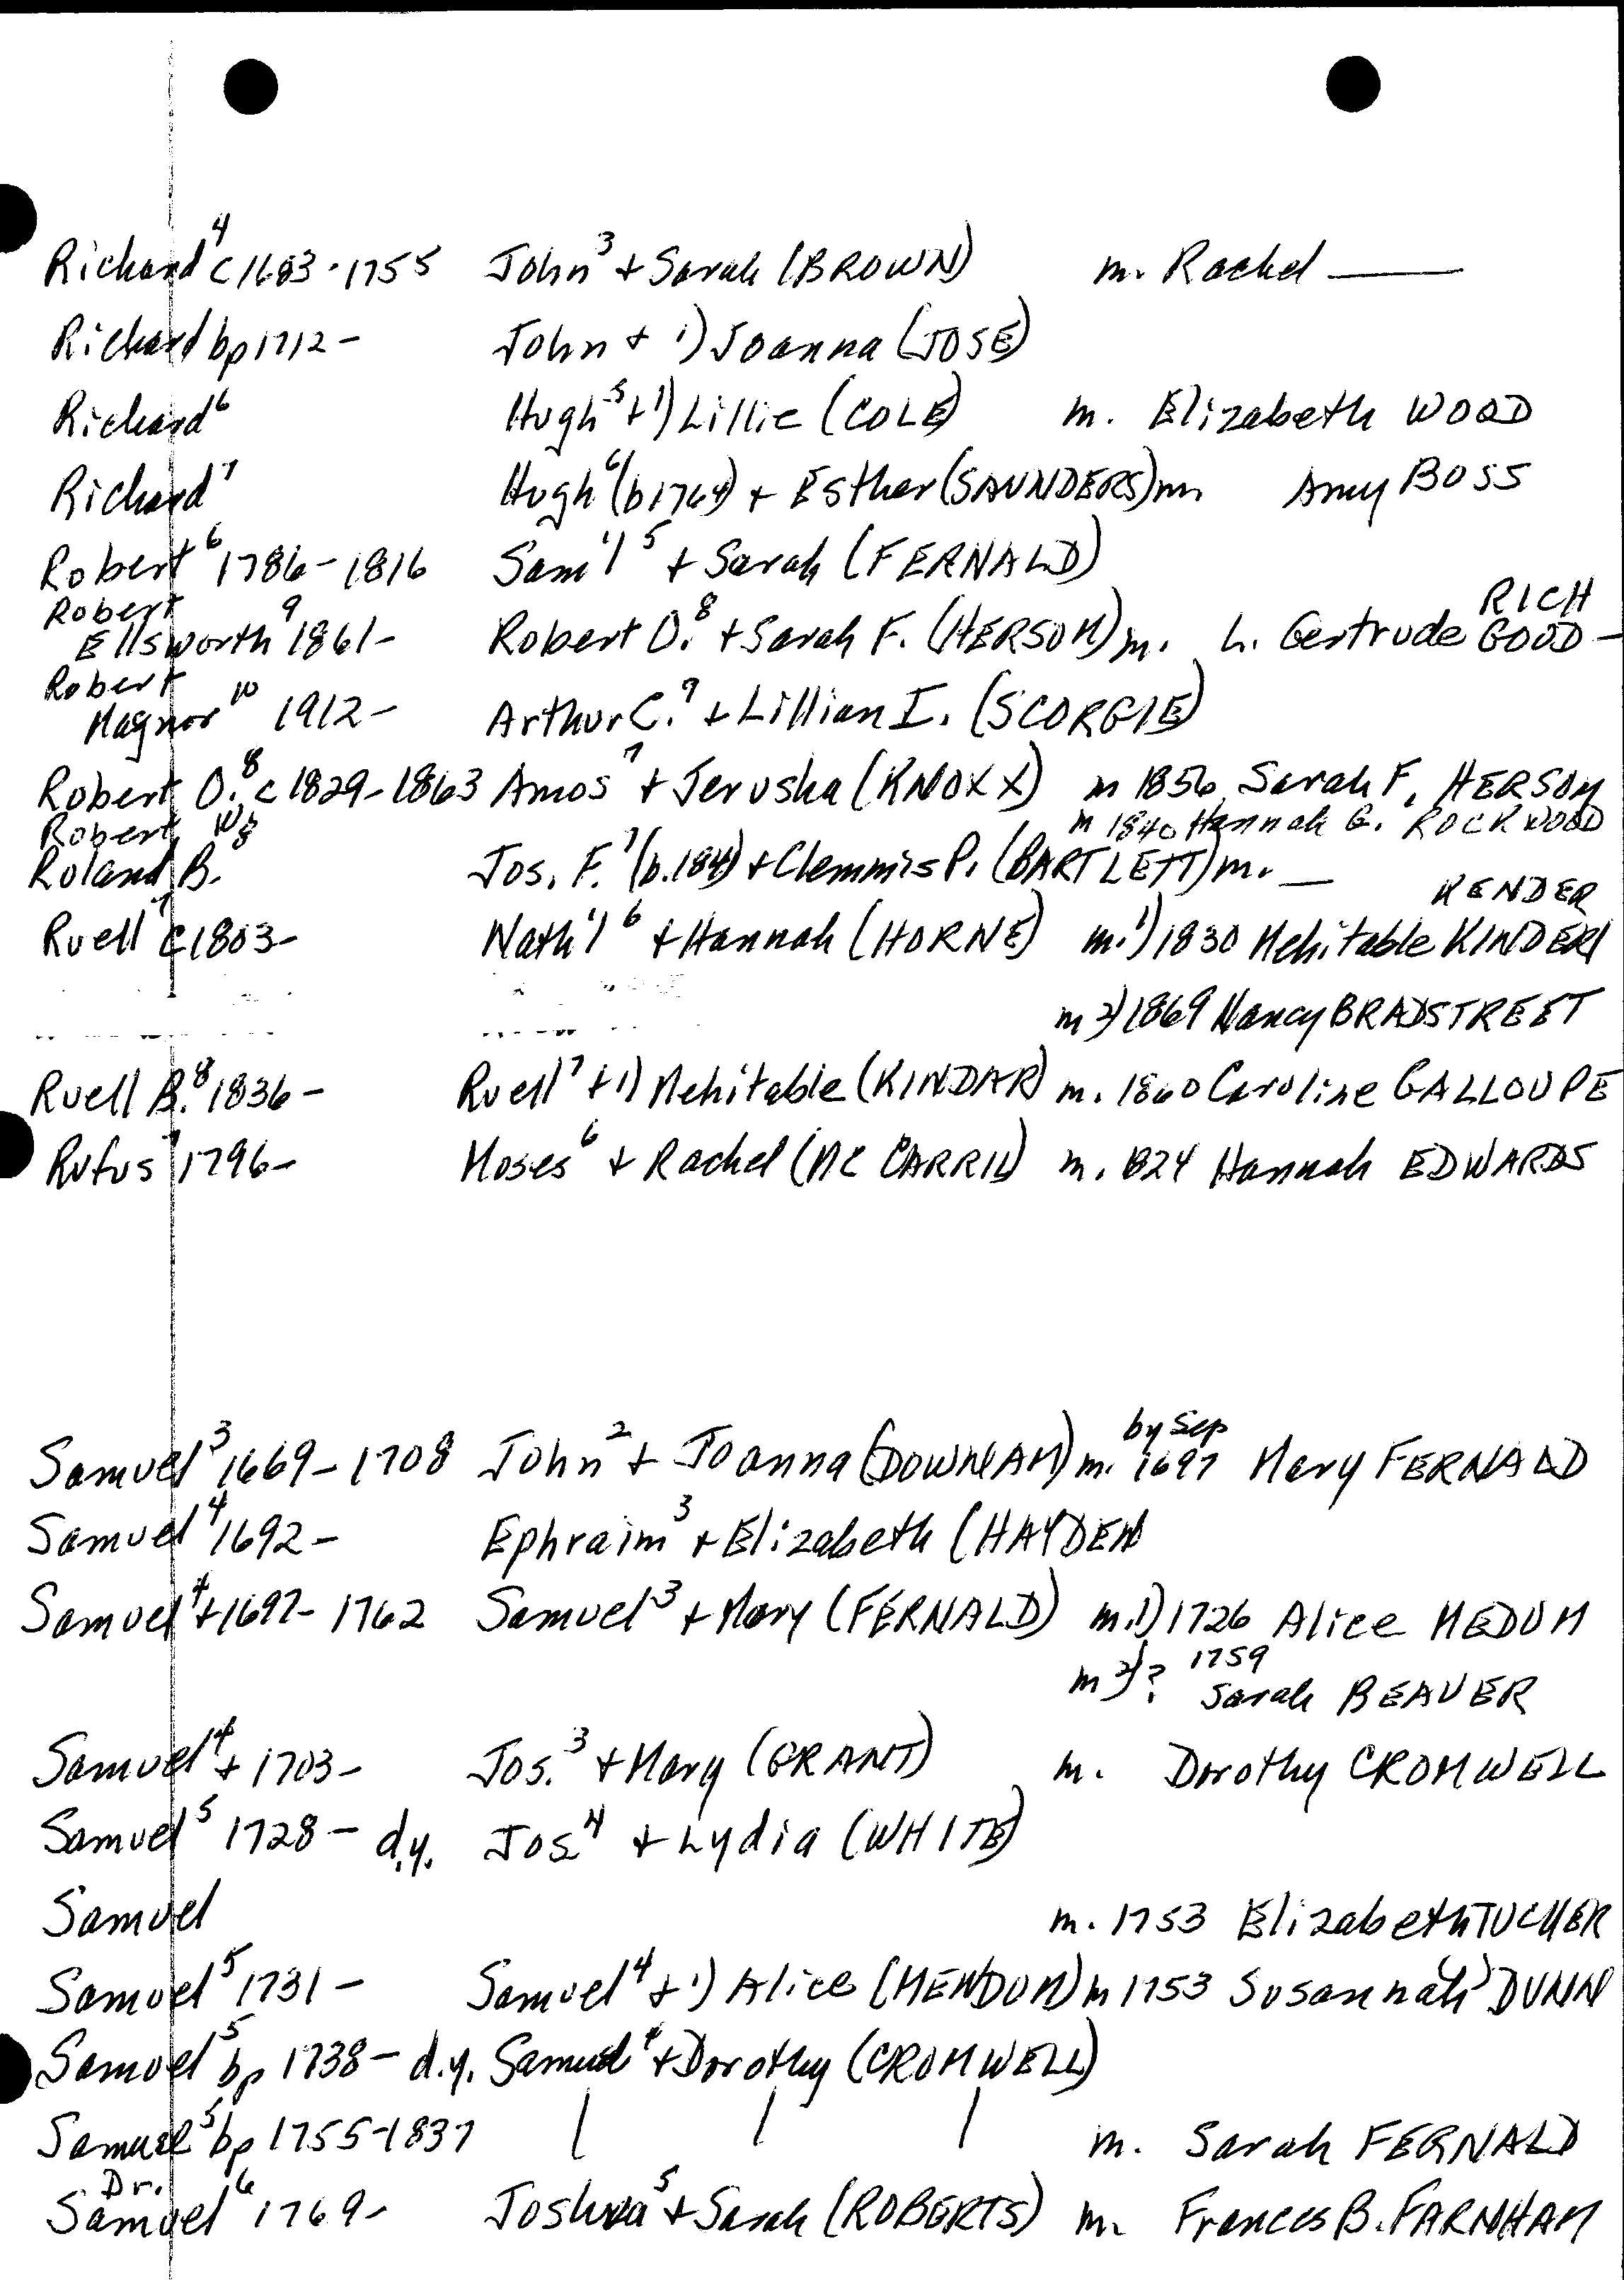 Richard⁴ c1683-1755 John³ + Sarah (BROWN) m. Rachel ——
Richard bp1712- John + 1) Joanna (JOSE)
Richard⁶ Hugh⁵ + 1) Lillie (COLE) m. Elizabeth WOOD
Richard⁷ Hugh⁶ (b1764) + Esther (SAUNDERS) m. Amy BOSS
Robert⁶ 1786-1816 Sam'l⁵ + Sarah (FERNALD)
Robert RICH
Ellsworth⁹ 1861- Robert O.⁸ + Sarah F. (HERSOM) m. L. Gertrude GOOD-
Robert
Magnor¹⁰ 1912- Arthur C.⁹ + Lillian I. (SCORGIE)
Robert O.⁸ c1829-1863 Amos⁷ + Jerusha (KNOXX) m 1856 Sarah F. HERSOM
Robert W. m 1840 Hannah G. ROCKWOOD
Roland B.⁸ Jos. F.⁷ (b.184) + Clemmis P. (BARTLETT) m. —
KENDER
Ruell⁷ c1803- Nath'l⁶ + Hannah (HORNE) m.1) 1830 Mehitable KINDER
m 2) 1869 Nancy BRADSTREET
Ruell B.⁸ 1836- Ruell⁷ + 1) Mehitable (KINDAR) m. 1860 Caroline GALLOUPE
Rufus⁷ 1796- Moses⁶ + Rachel (MC CARRIL) m. 1824 Hannah EDWARDS
by Sep
Samuel³ 1669-1708 John² + Joanna (DOWNAM) m. 1697 Mary FERNALD
Samuel⁴ 1692- Ephraim³ + Elizabeth (HAYDEN
Samuel⁴ + 1697-1762 Samuel³ + Mary (FERNALD) m.1) 1726 Alice MEDUM
1759
m 2)? Sarah BEAVER
Samuel⁴ + 1703- Jos.³ + Mary (GRANT) m. Dorothy CROMWELL
Samuel⁵ 1728- d.y. Jos⁴ + Lydia (WHITE)
Samuel m. 1753 Elizabeth TUCKER
Samuel⁵ 1731- Samuel⁴ + 1) Alice (MENDUM) m 1753 Susannah DUNN
Samuel⁵ bp 1738- d.y. Samuel⁴ + Dorothy (CROMWELL)
Samuel⁵ bp 1755-1837 | | | m. Sarah FERNALD
Dr.
Samuel⁶ 1769- Joshua⁵ + Sarah (ROBERTS) m. Frances B. FARNHAM